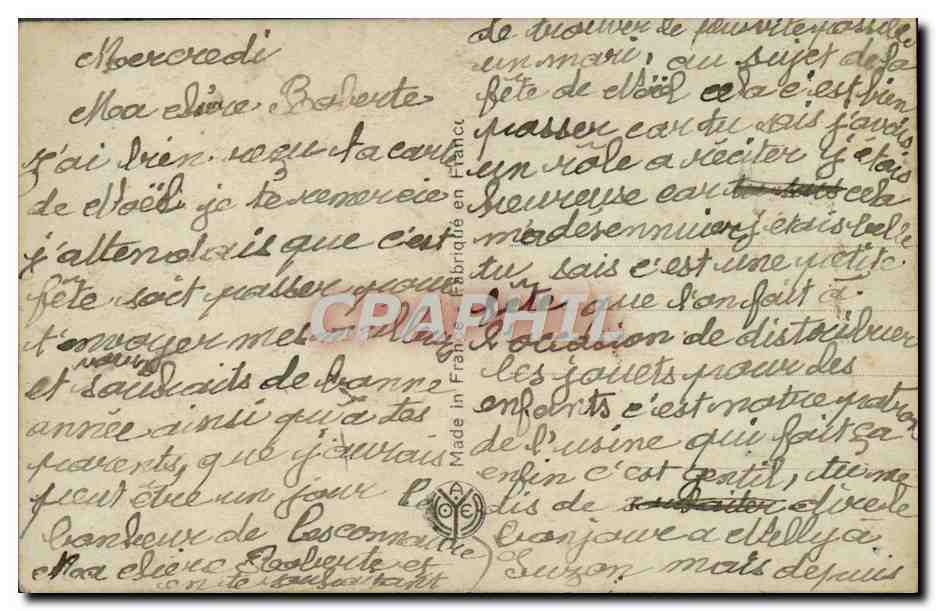 Mercredi
Ma chère Roberte
J'ai bien reçu ta carte
de Noël je te remercie
j'attendais que c'est
fête soit passer pour
t'envoyer mes meilleurs
voeux
et souhaits de bonne
année ainsi qu'a tes
parents, que j'aurais
peut être un jour le
bonheur de les connaitre
Ma chère Roberte et
en te souhaitant
de trouver le plus vite possible
un mari, au sujet de la
fête de Noël cela c'est bien
passer car tu sais j'avais
un rôle a réciter j'étais
heureuse car cela
m'a désennuier j'étais belle
tu sais c'est une petite
fête que l'on fait a
l'occasion de distribuer
les jouets pour les
enfants c'est notre patron
de l'usine qui fait ça
enfin c'est gentil, tu me
dis de souhaiter dire le
bonjour a Nelly a
Suzon mais depuis
Made in France Fabriqué en France
CPAPHIL